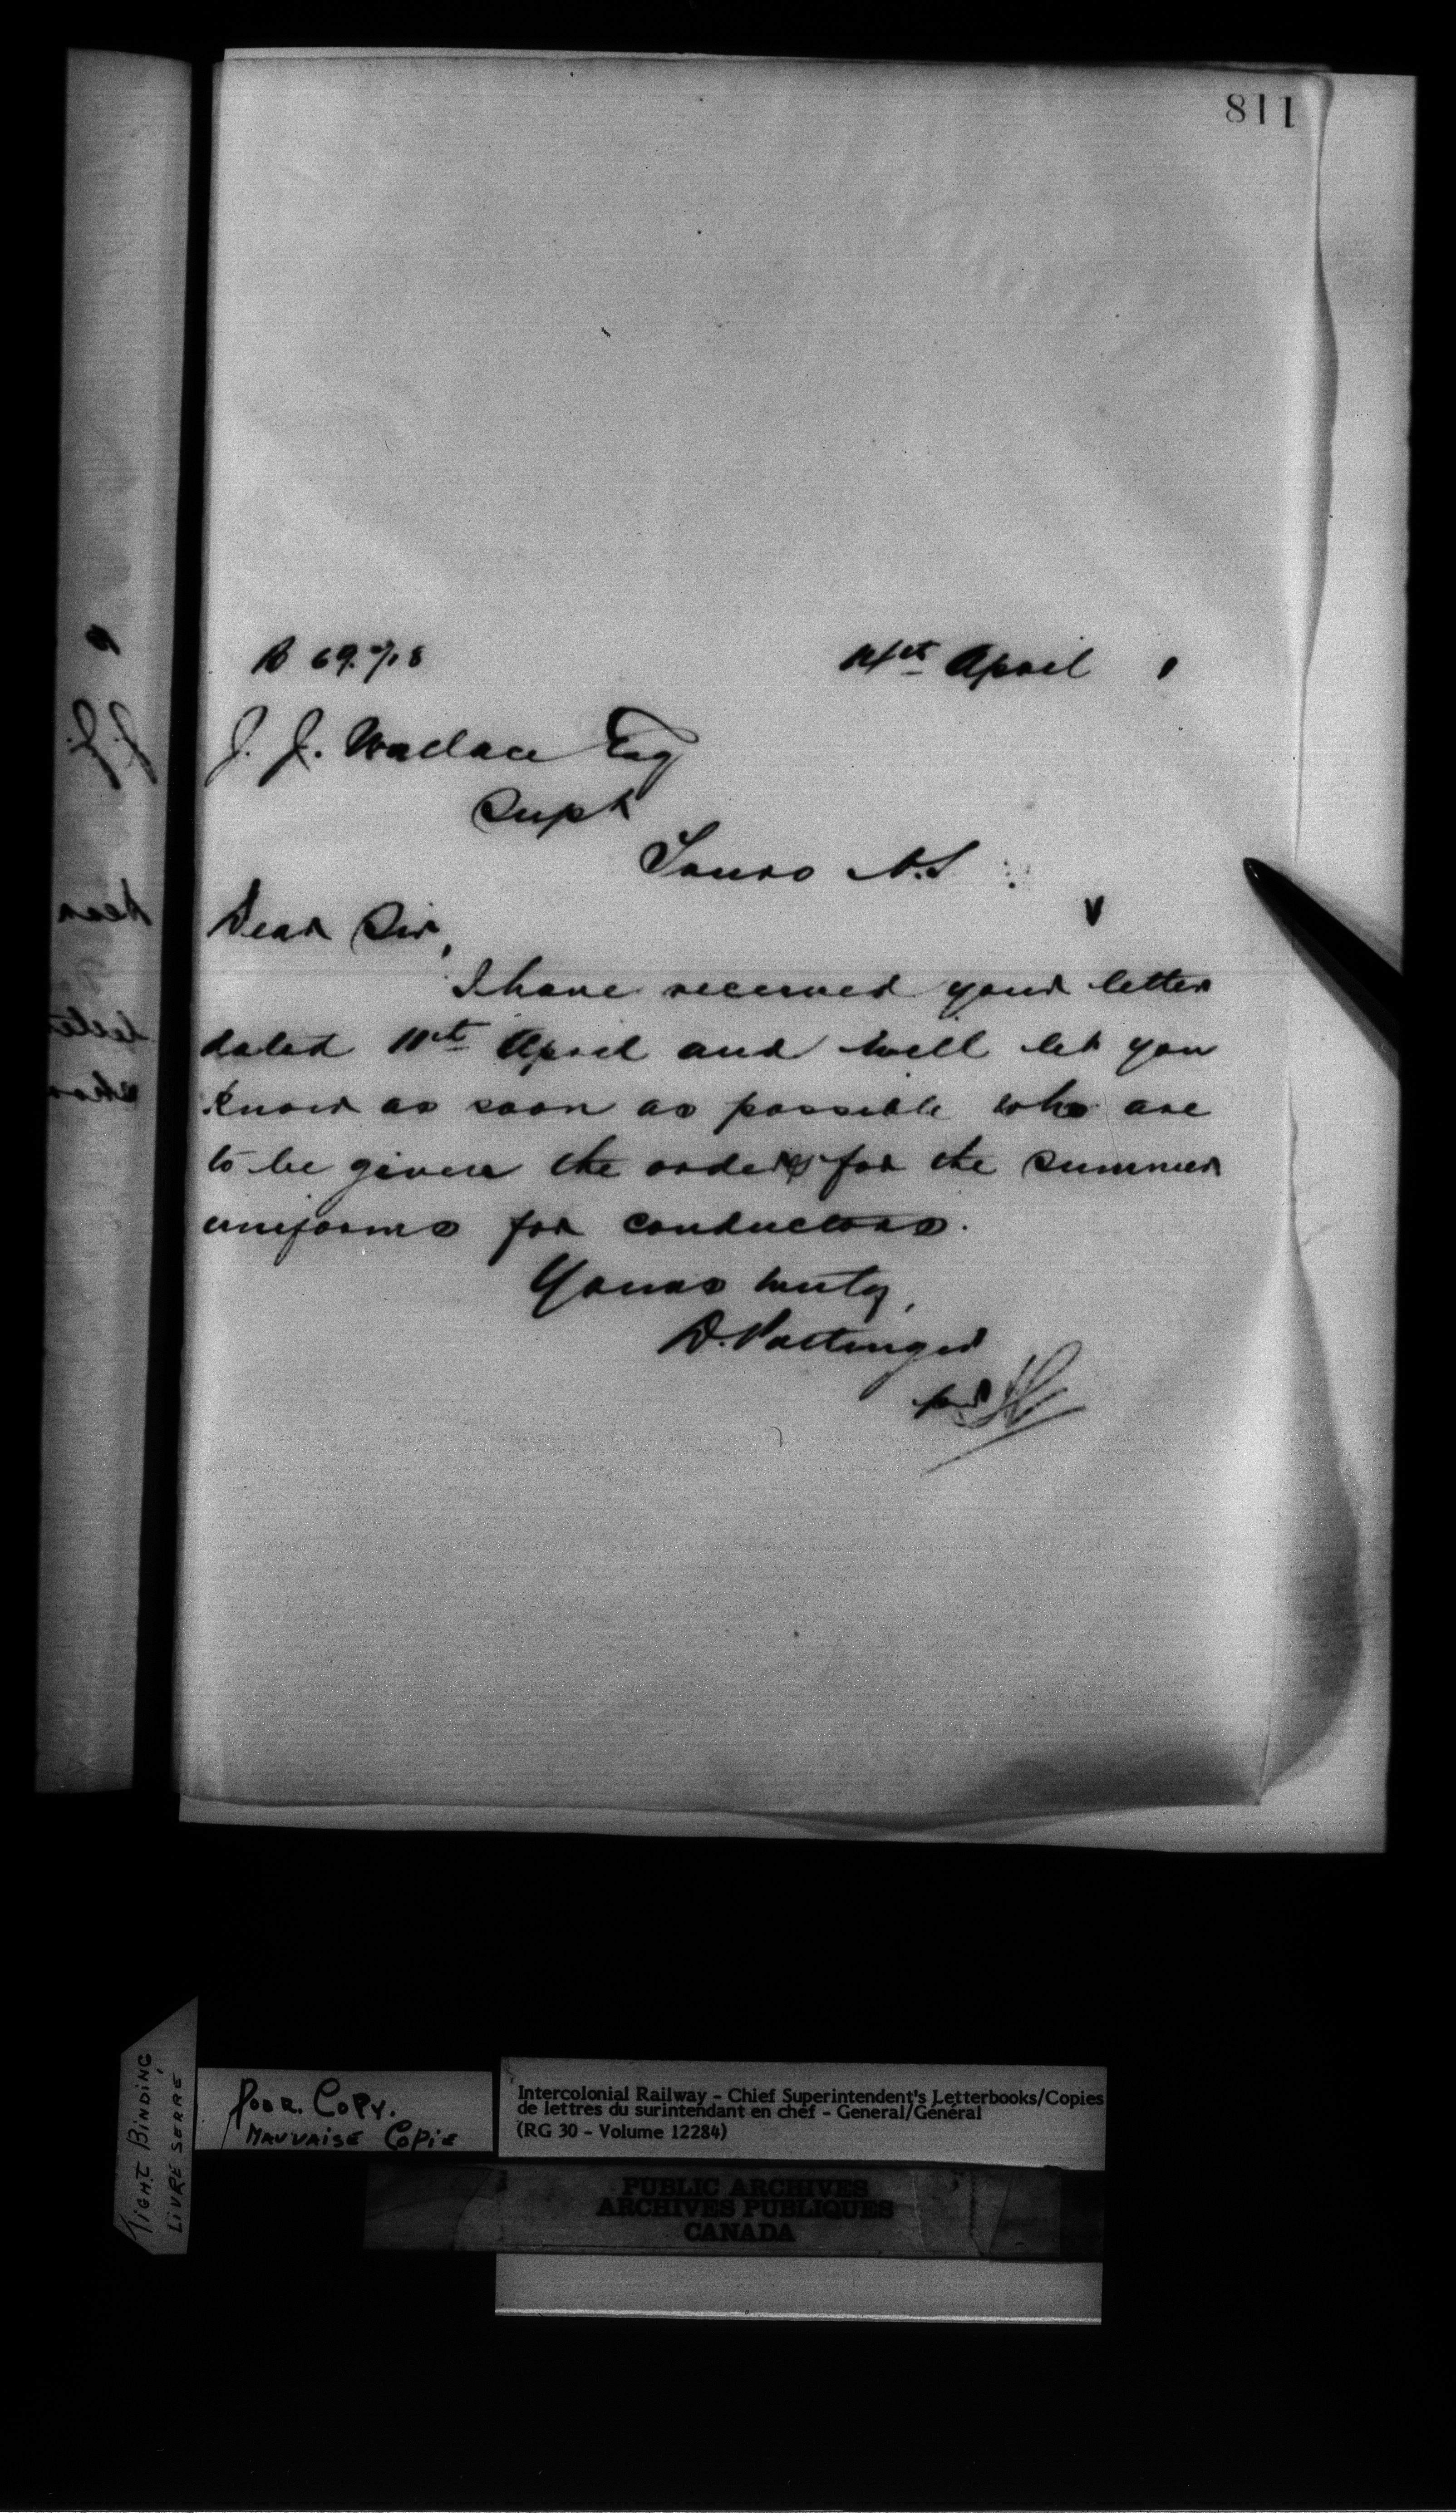 811
14th April
J. J. Wallace Esq
Supt
Truro N.S
Dear Sir,
I have received your letter
dated 11th April and will let you
know as soon as possible who are
to be given the orders for the summer
uniforms for conductors.
Yours truly,
D. Pottinger
per
TIGHT BINDING,
LIVRE SERRE
POOR. COPY.
MAUVAISE COPIE
Intercolonial Railway – Chief Superintendent's Letterbooks/Copies
de lettres du surintendant en chef – General/Général
(RG 30 – Volume 12284)
PUBLIC ARCHIVES
ARCHIVES PUBLIQUES
CANADA